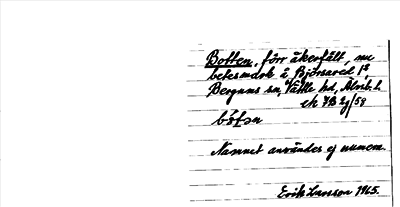 Botten, förr åkerfält, nu
betesmark å Björsared 1²,
Bergums sn, Vättle hd, Älvsb. l.
ek 7B 2j/59
båt̠ən
Namnet användes ej numera.
Erik Larsson 1965.